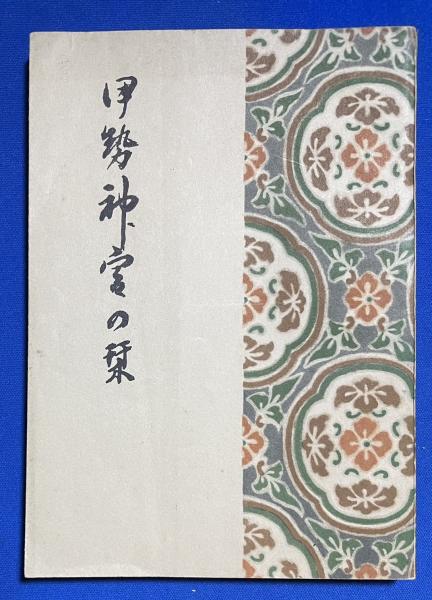 伊勢神宮の栞